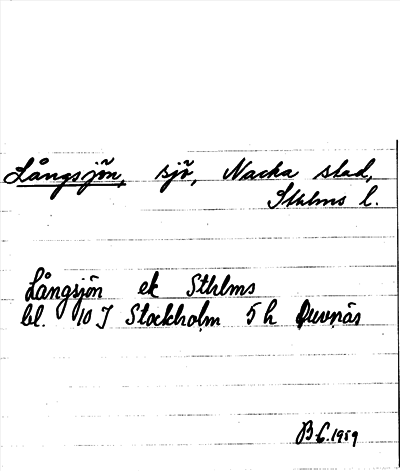 Långsjön, sjö, Nacka stad,
Sthlms l.
Långsjön ek Sthlms
bl. 10 I Stockholm 5 h Duvnäs
B.C. 1959